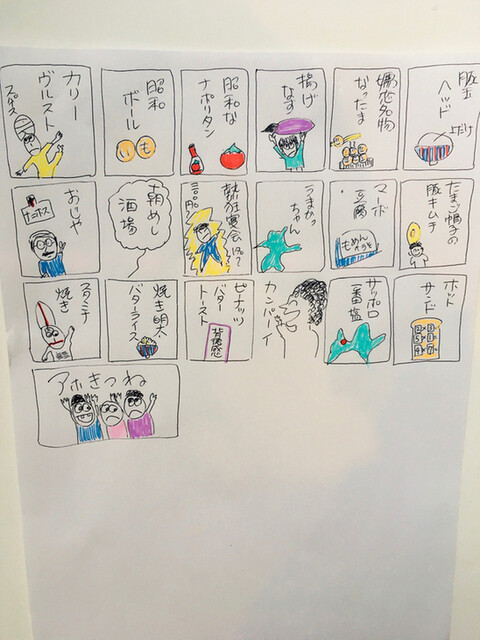 豚玉
ヘッド
よだけ
嫉妬名物
なったま
揚げ
なす
昭和な
ナポリタン
昭和
ボール
い も
カリー
ヴルスト
たまご帽子の
豚キムチ
マーボ
豆腐
もめん
うまかっ
ちゃん
就狂宴会
一三〇〇円
朝めし
酒場
おじや
ホット
サンド
サッポロ
一番塩
カンパーイ
ピーナッツ
バター
トースト
背徳感
焼き明太
バターライス
スタミナ
焼き
アホきつね